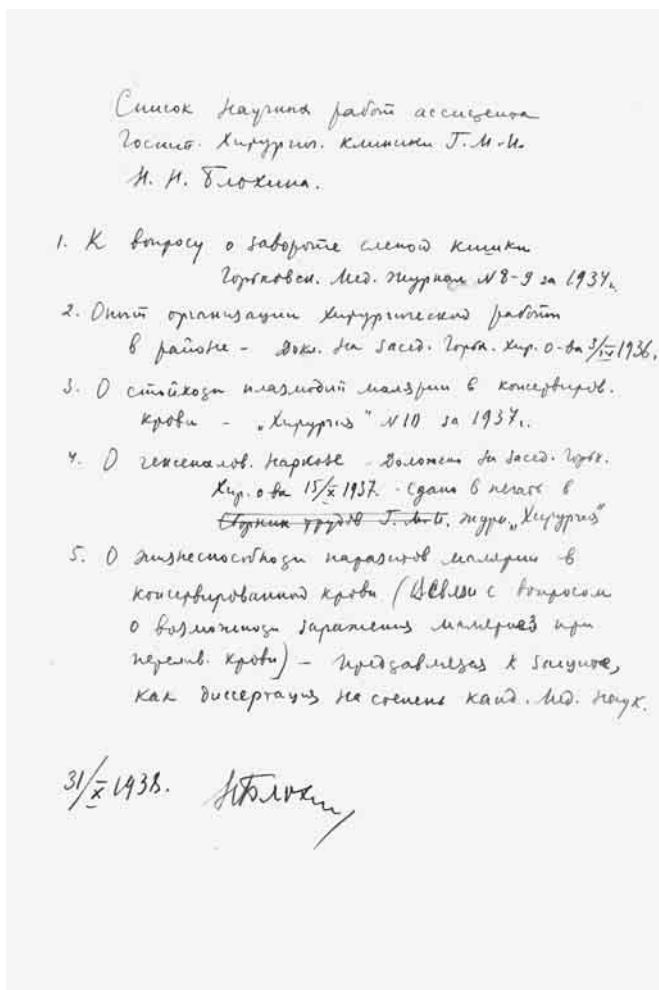 Список научных работ ассистента
Госпит. Хирургич. клиники Г.М.И.
Н. Н. Блохина.
1. К вопросу о завороте слепой кишки
Горьковск. Мед. журнал N 8-9 за 1934г.
2. Опыт организации хирургической работы
в районе – Докл. на засед. Горьк. Хир. О-ва 3/IV 1936г.
3. О стойкости плазмодий малярии в консервиров.
крови – „Хирургия" N10 за 1937г.
4. О гексенала. наркозе – Доложено на засед. Горьк.
Хир. о-ва 15/X 1937. – Сдано в печать в
Сборник трудов Г.М.И. журн. „Хирургия"
5. О жизнеспособности паразитов малярии в
консервированной крови (В связи с вопросом
о возможности заражения малярией при
перелив. крови) – представляется к защите,
как диссертация на степень канд. мед. наук.
31/X 1938. НБлохин